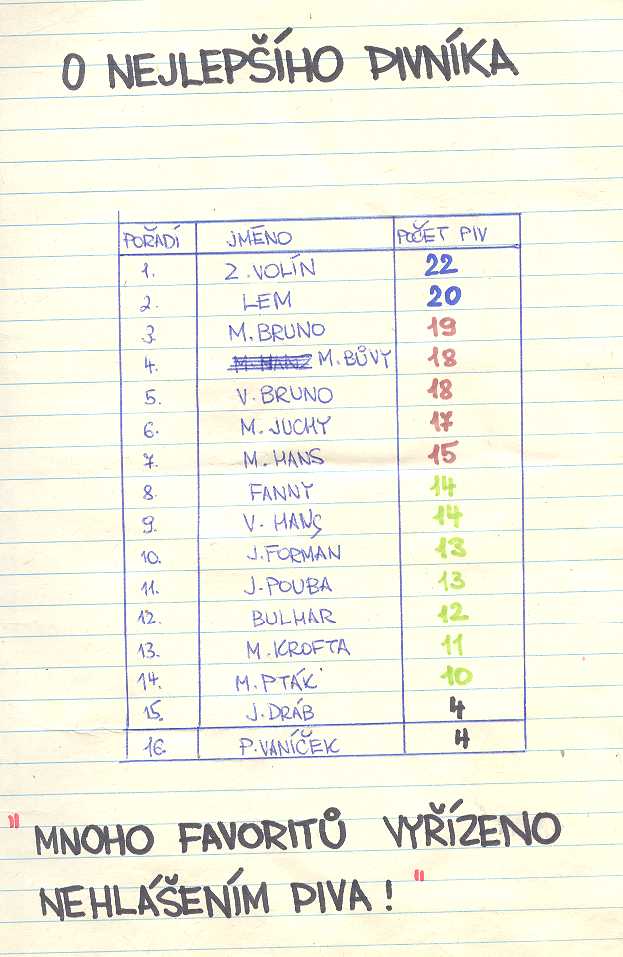 O NEJLEPŠÍHO PIVNÍKA
POŘADÍ JMÉNO POČET PIV
1. Z. VOLÍN 22
2. LEM 20
3. M. BRUNO 19
4. M. HANZ M. BŮVY 18
5. V. BRUNO 18
6. M. JUCHY 17
7. M. HANS 15
8. FANNY 14
9. V. HANS 14
10. J. FORMAN 13
11. J. POUBA 13
12. BULHAR 12
13. M. KROFTA 11
14. M. PTÁK 10
15. J. DRÁB 4
16. P. VANÍČEK 4
"MNOHO FAVORITŮ VYŘÍZENO
NEHLÁŠENÍM PIVA!"